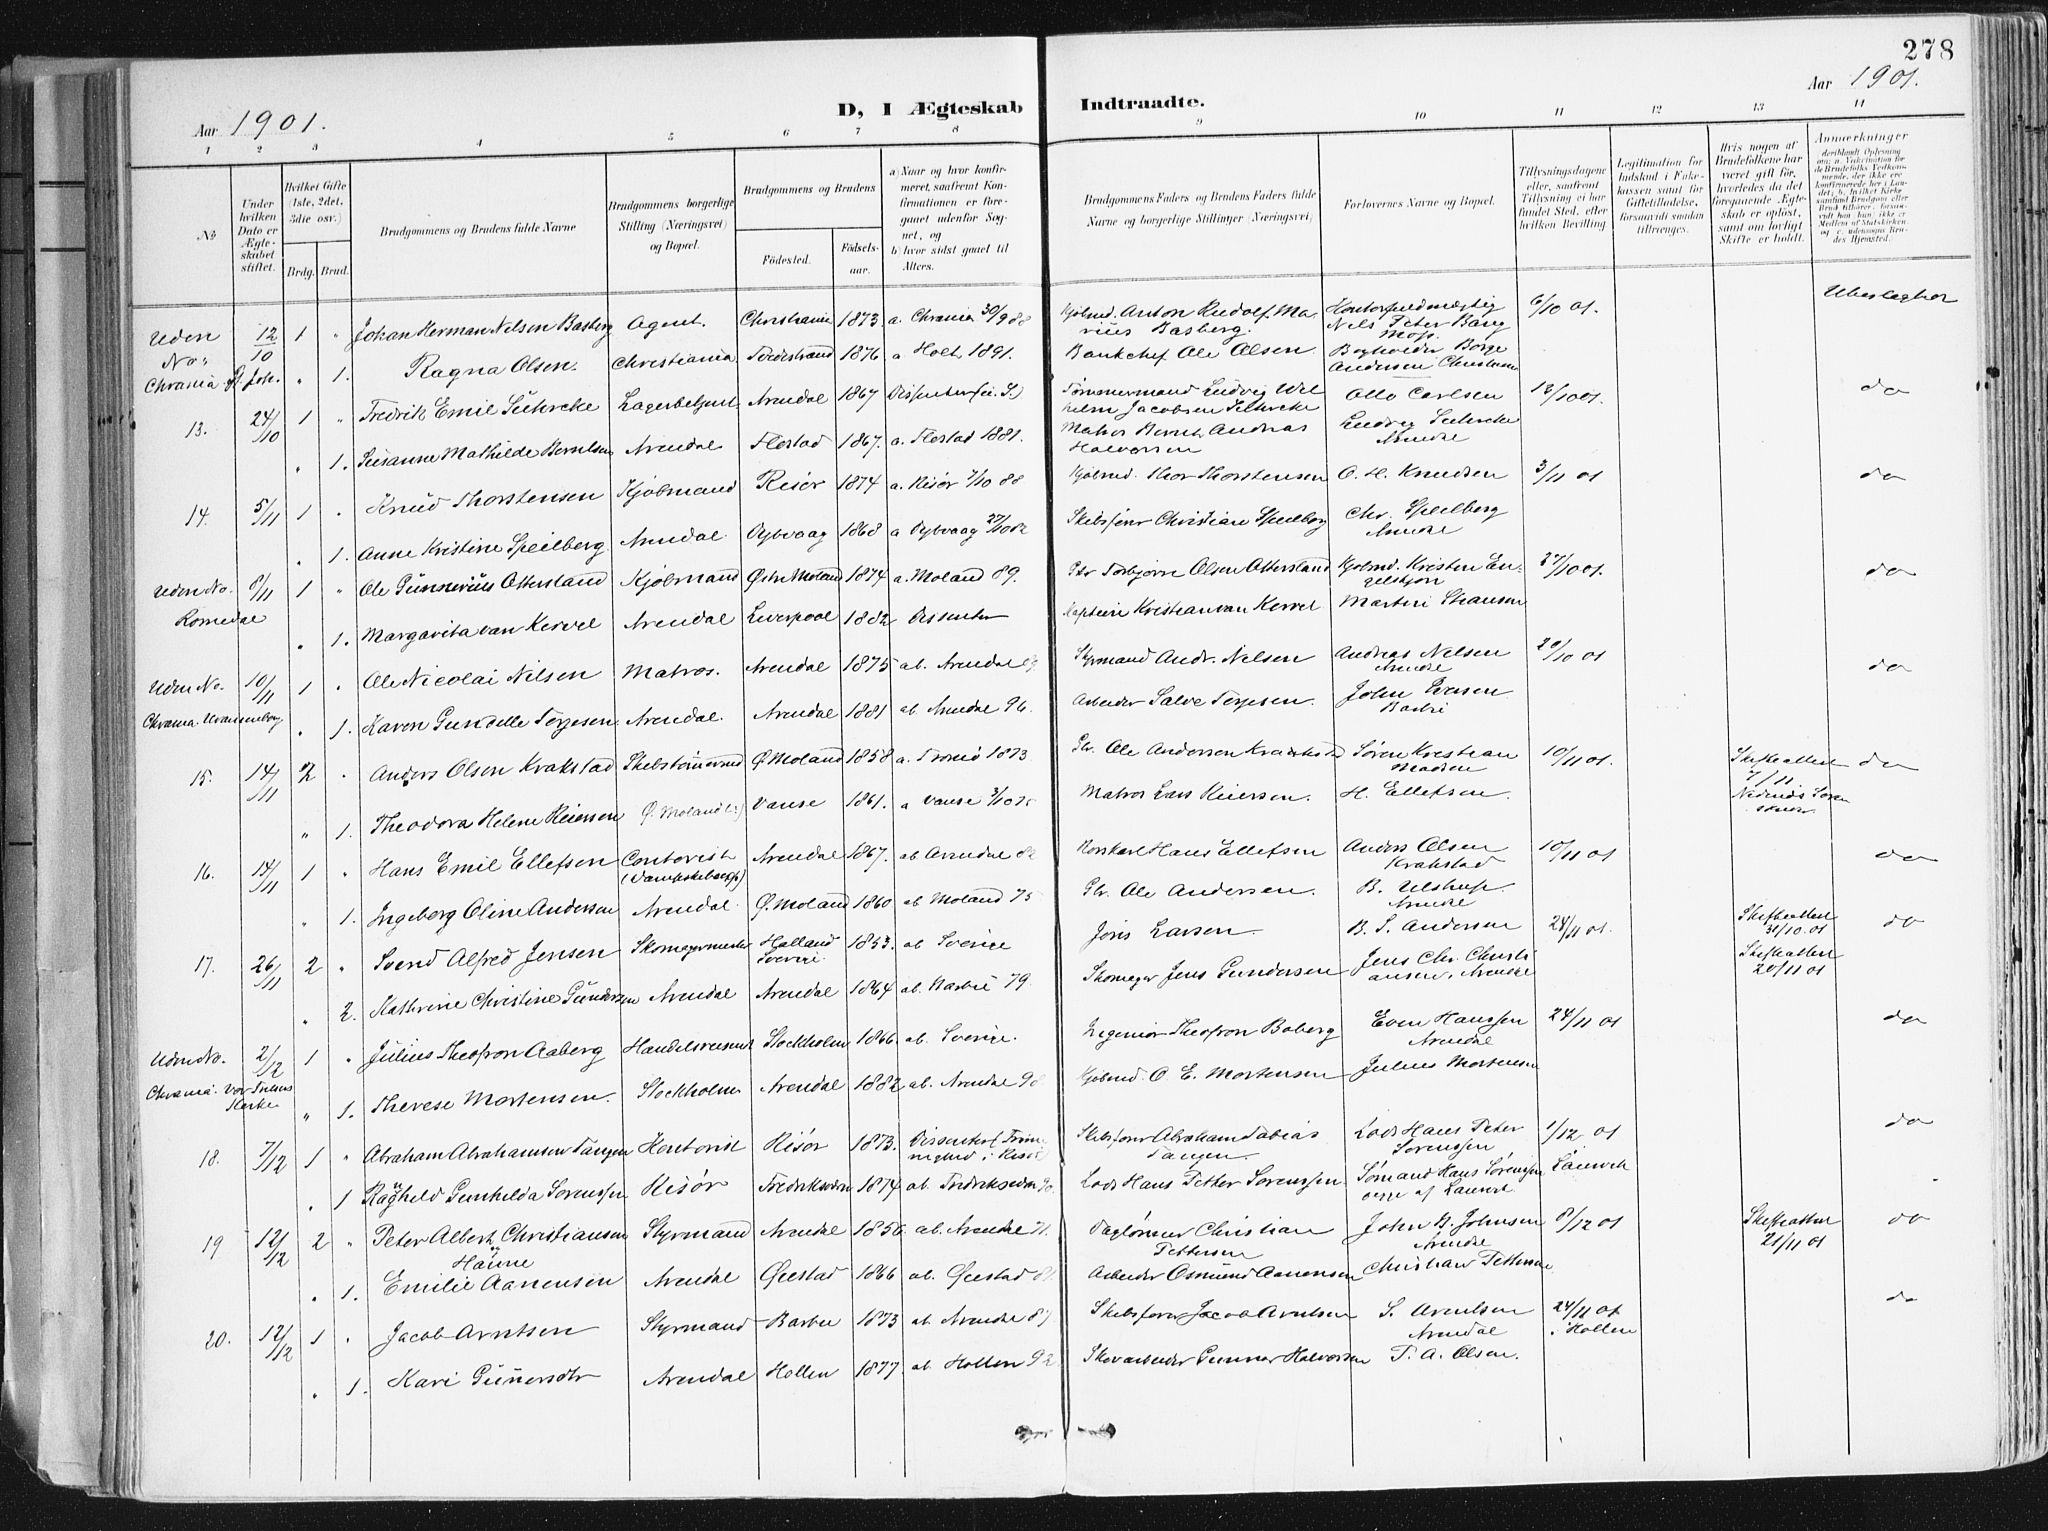 278
Aar 1901.
D, I Ægteskab Indtraadte.
Aar 1901.
1 2 3 4 5 6 7 8 9 10 11 12 13 14
No
Under hvilken Dato er Ægteskabet stiftet.
Hvilket Gifte (1ste, 2det, 3die osv.)
Brdg. Brud.
Brudgommens og Brudens fulde Navne
Brudgommens borgerlige Stilling (Næringsvei) og Bopæl.
Brudgommens og Brudens
Fødested. Fødselsaar.
a) Naar og hvor konfirmeret, saafremt Konfirmationen er foregaaet udenfor Sognet, og
b) hvor sidst gaaet til Alters.
Brudgommens Faders og Brudens Faders fulde Navne og borgerlige Stillinger (Næringsvei)
Forlovernes Navne og Bopæl.
Tillysningsdagene eller, saafremt Tillysning ei har fundet Sted, efter hvilken Bevilling.
Legitimation for Indskud i Enkekassen samt for Giftetilladelse, forsaavidt saadan tiltrænges.
Hvis nogen af Brudefolkene har været gift før, hvorledes da det foregaaende Ægteskab er opløst, samt om lovligt Skifte er holdt.
Anmærkninger
Uden No. Chrania St. Joh. 12/10 1 " Johan Herman Nelson Basberg Agent. Christiania 1873 a. Chrania 30/9 88 Kjøbmd. Anton Rudolf Marius Basberg. Kontorfuldmægtig Nils Peter Bang Moss. 6/10 01. Ubeslægtet
" 1. Ragna Olsen. Christiania Tvedestrand 1876 a Holt 1891. Bankchef Ole Olsen Bogholder Borge Andersen Christiania
13. 24/10 1 " Fredrik Emil Sühreke Lagerbetjent Arendal 1867 Dissenter Tømmermand Ludvig Wilhelm Jacobsen Otto Carlsen 13/10 01. do
" 1. Susanne Mathilde Berntsen Arendal Flostad 1867. a. Flostad 1881. Matros Bernt Andreas Halvorsen Ludvig Arendal
14. 5/11 1 " Knud Thorstensen Kjøbmand Risør 1874 a. Risør 7/10 88 Kjøbmd. Thor Thorstensen O. H. Knudsen 3/11 01 do
" 1. Anne Kristine Speilberg Arendal Dybvaag 1868 a Dybvaag Skibsfører Christian Speilberg Chr. Speilberg Arendal
Uden No. 8/11 1 " Ole Gunnerius Otterstand Kjøbmand Østre Moland 1874 a. Moland 89. Torbjørn Olsen Otterstand Kjøbmd. Kristen 27/10 01. do
" 1. Margarita van Kervel Arendal Liverpool 1882 Dissenter Kaptein Kristian van Kervel
Uden No. 10/11 1 " Ole Nicolai Nilsen Matros. Arendal 1875 ab. Arendal Styrmand Andr. Nelsen Andreas Nelsen Arendal 20/10 01 do
Chrania. Uranienborg " 1. Karen Gundelle Torjesen Arendal. Arendal 1881 ab. Arendal 96. Arbeider Salve Torjesen. John Barbu
15. 14/11 2 " Anders Olsen Krakstad Skibstømmermd Ø. Moland 1858 a. Tromø 1873 Gbr. Ole Andersen Krakstad Søren Kristian Madsen 10/11 01. Skifteattest 7/11 Nedenæs Soren skriver do
" 1. Theodora Helene Reiersen Vanse 1861. a Vanse Matros Lars Reiersen. H. Ellefsen.
16. 14/11 1 " Hans Emil Ellefsen Contorist Arendal 1867. ab Arendal 82 Hans Ellefsen Anders Olsen Krakstad 10/11 01 do
" 1. Ingeborg Oline Andersen Arendal. Ø. Moland 1860 ab Moland 75 Gbr. Ole Andersen. B. Ulstrup. Arendal
17. 26/11 2 " Svend Alfred Jensen Skomagermester Halland Sverige 1853. ab Sverige Jøns Larsen B. S. Andersen 24/11 01. Skifteattest 31/10 01 do
" 2. Kathrine Christine Gundersen Arendal Arendal 1864 ab. Barbu 79. Skomager Jens Gundersen Jens Chr. Christiansen, Arendal Skifteattest 20/11 01
Uden No. 2/12 1 " Julius Theofron Aaberg Handelsreisende Stockholm 1866. ab. Sverige. Ingeniør Theofron Boberg Even Hanssen Arendal 24/11 01 do
Chrania. Vor Frelsers Kirke " 1. Therese Mortensen. Stockholm Arendal 1882 ab. Arendal 98 Kjøbmd. O. E. Mortensen Julius Mortensen
18. 7/12 1 " Abraham Abrahamsen Tangen Kontorist Risør 1873. Dissenter i Risør Skibsfører Abraham Tobias Tangen Lods Hans Peter Sorenssen 1/12 01 do
" 1 Ragnheld Gunhilda Sorenssen Risør Fredriksværn 1874 ab. Fredriksværn 90. Lods Hans Petter Sorenssen Sømand Hans Sørenssen begge af Laurvik Laurvik
19 12/12 2 " Peter Albert Christiansen Hanne Styrmand Arendal 1856. ab. Arendal 71. Daglønner Christian Pettersen John B. Johnsen Arendal 8/12 01 Skifteattest 21/11 01 do
" 1. Emilie Aanensen Arendal Øiestad 1866 ab. Øiestad 81. Arbeider Osmund Aanensen Christian Pettersen
20. 12/12 1 " Jacob Arntsen Styrmand Barbu 1873 ab Arendal 87 Skibsfører Jacob Arntsen S. Arentsen Arendal 24/11 01 i Hollen do
" 1. Kari Gunersdtr Arendal Hollen 1877. ab. Hollen 92 Skovarbeider Gunnar Halvorsen T. A. Olsen.